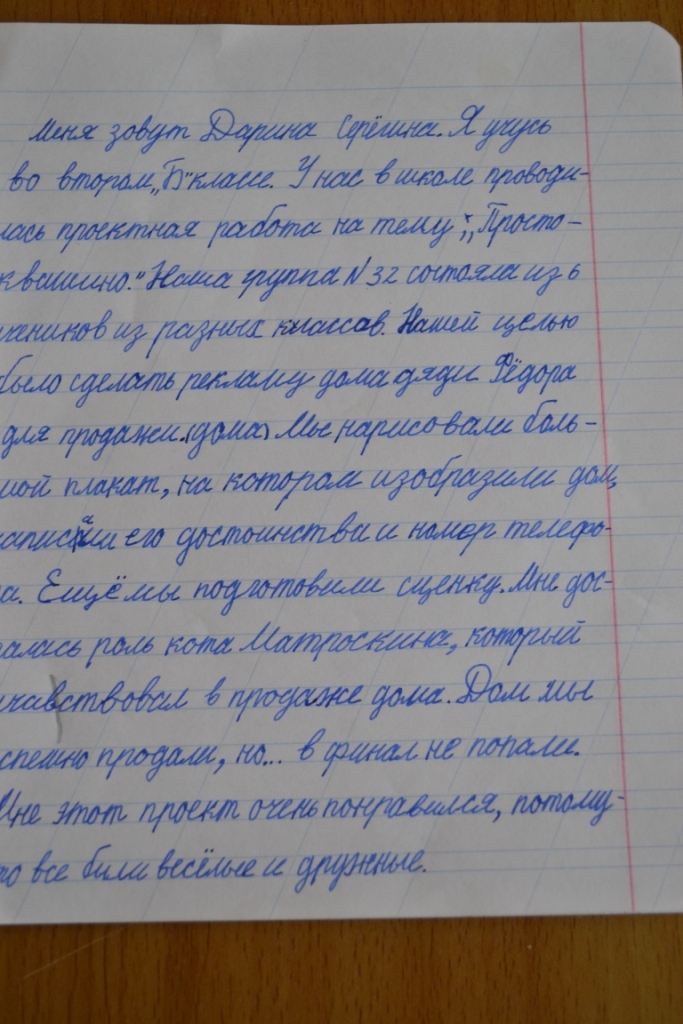 Меня зовут Дарина Серёгина. Я учусь
во втором „Б“ классе. У нас в школе проводи-
лась проектная работа на тему: „Просто-
квашино.“ Наша группа N 32 состояла из 6
чеников из разных классов. Нашей целью
было сделать рекламу дома дяди Фёдора
для продажи. (дома) Мы нарисовали боль-
шой плакат, на котором изобразили дом,
написали его достоинства и номер телефо-
на. Ещё мы подготовили сценку. Мне дос-
талась роль кота Матроскина, который
учавствовал в продаже дома. Дом мы
спешно продали, но... в финал не попали.
Мне этот проект очень понравился, потому-
то все были весёлые и дружные.